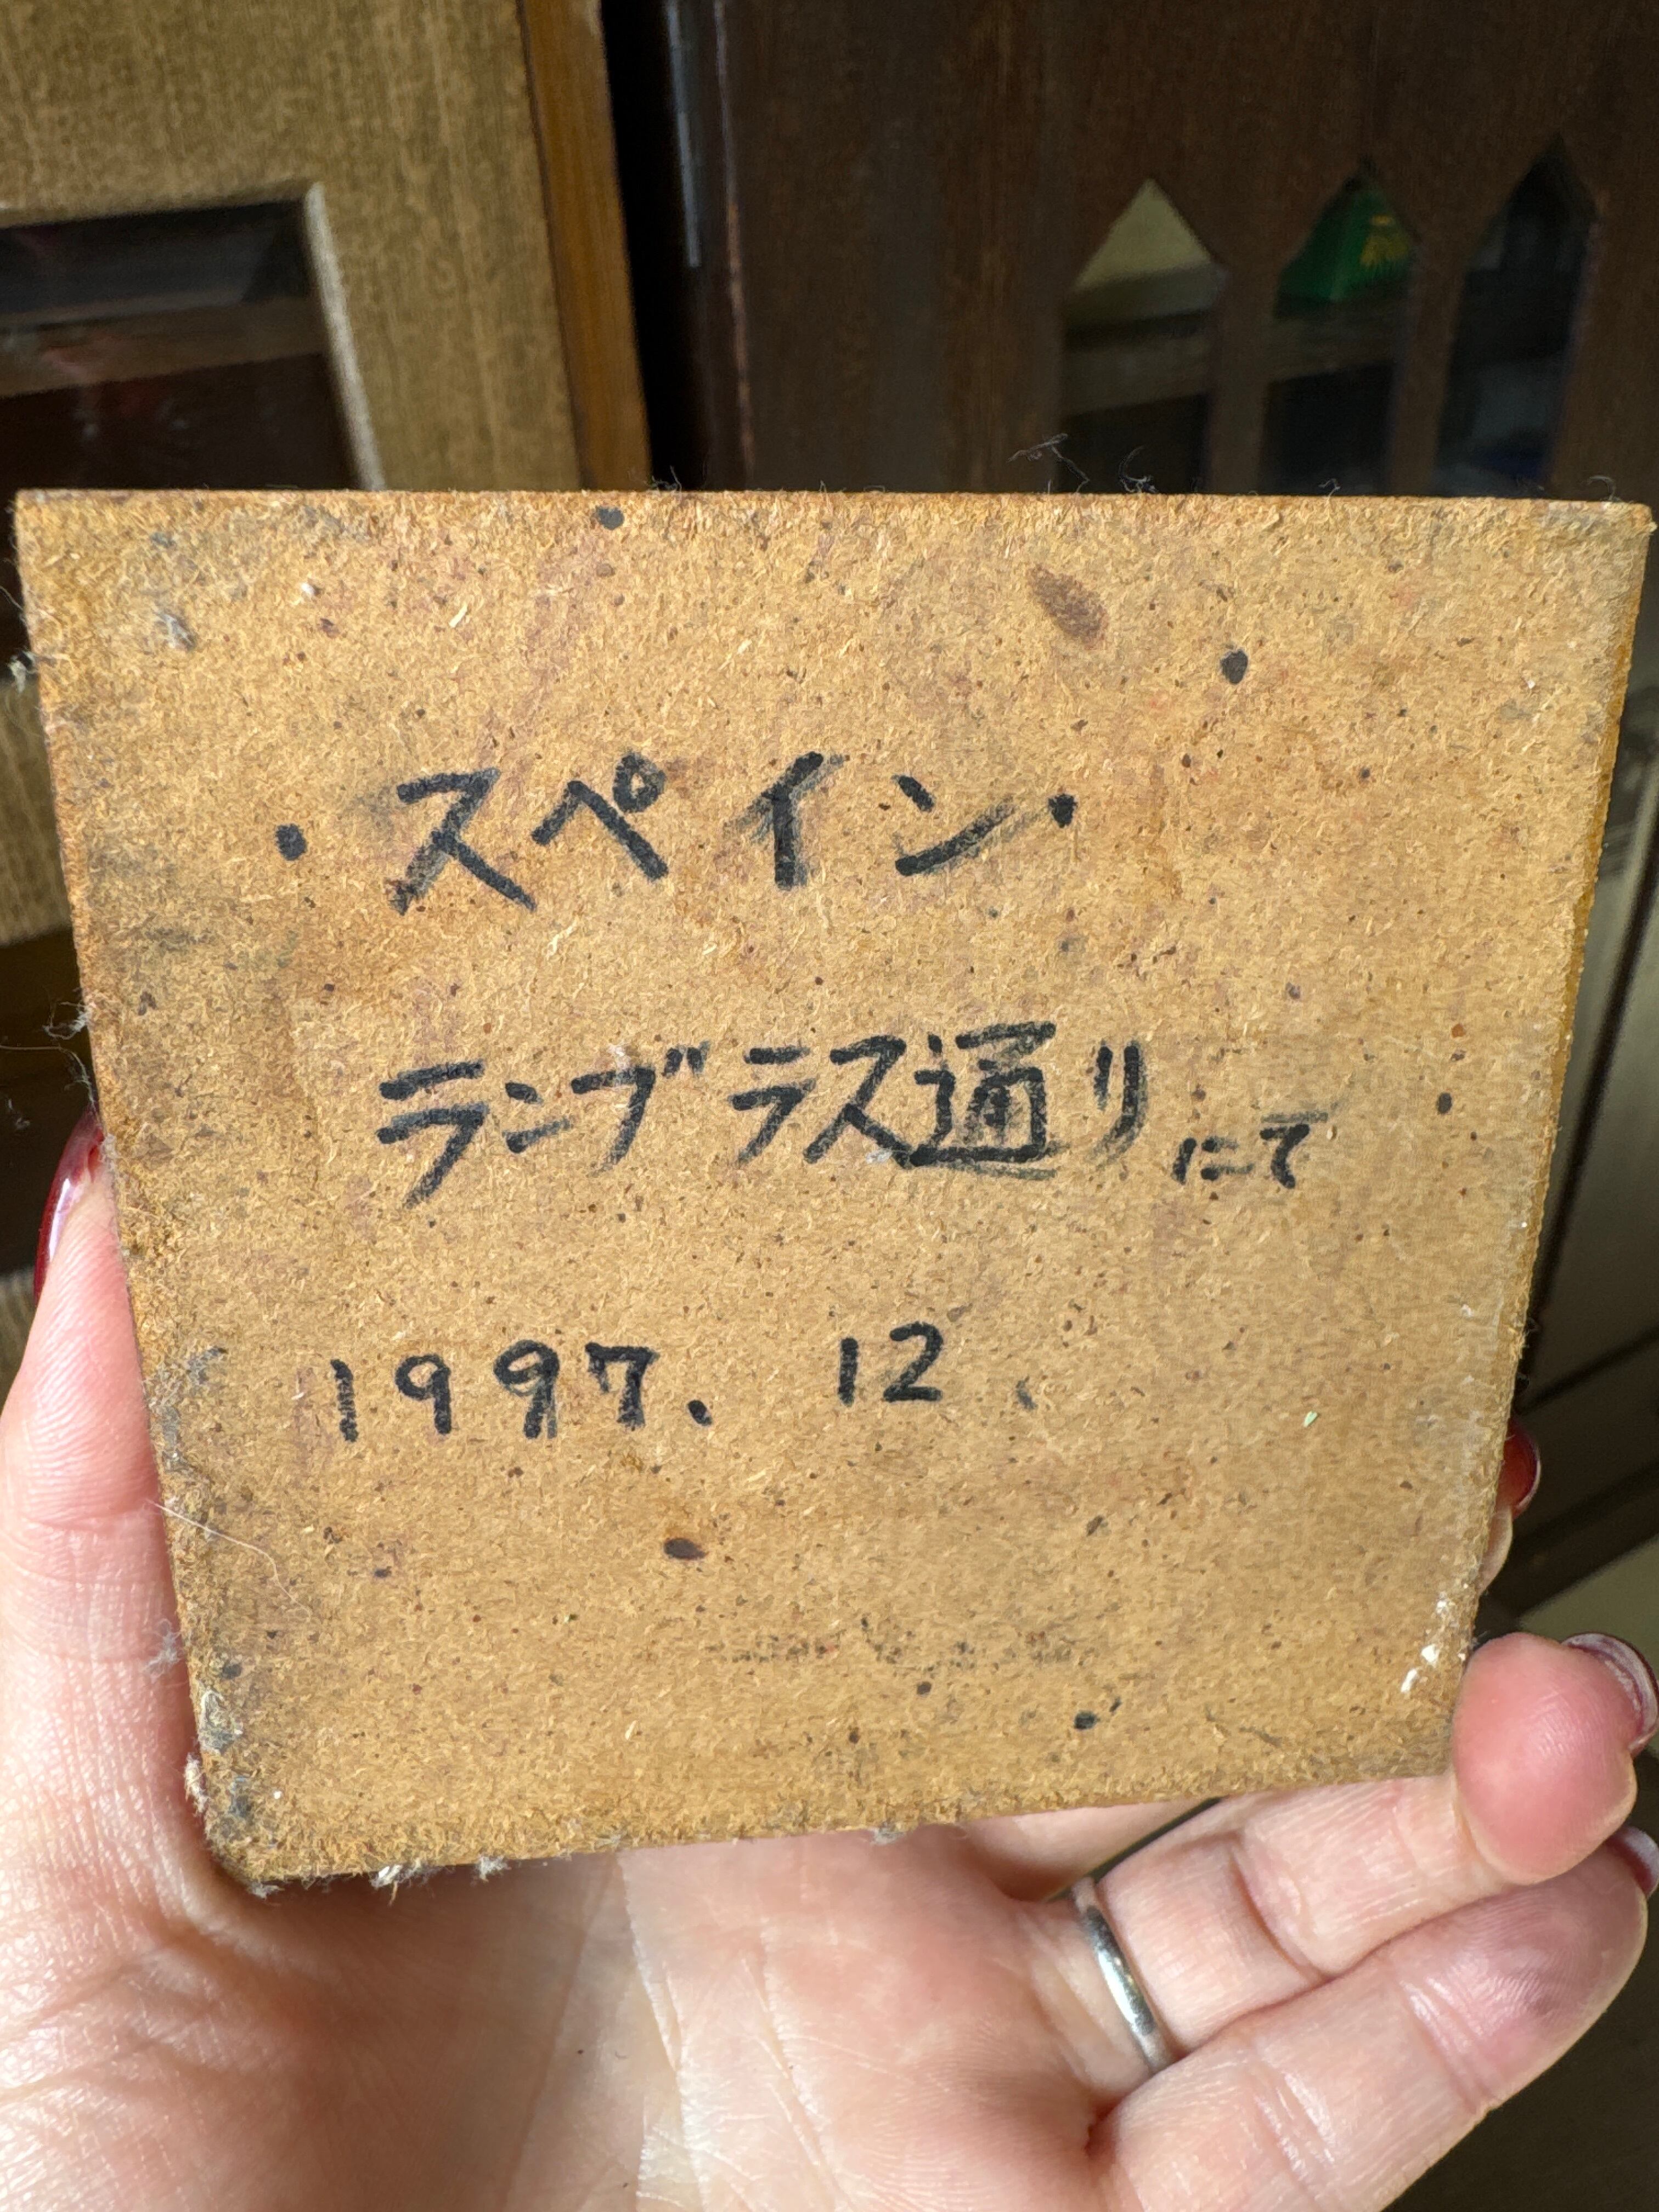 ・スペイン・
ランブラス通りにて
1997. 12.